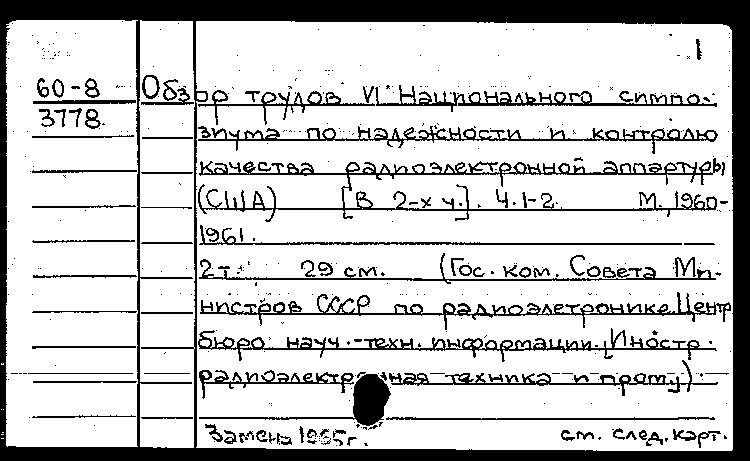 1
60-8 Обзор трудов VI Национального симпо-
3778 зиума по надежности и контролю
качества радиоэлектронной аппартуры
(США) [В 2-х ч.]. Ч.1-2. М., 1960-
1961.
2 т. 29 см. (Гос. ком. Совета Ми-
нистров СССР по радиоэлетронике. Центр
бюро науч.-техн. информации. Иностр.
радиоэлектронная техника и пром.)
Замена 1965г. см. след. карт.